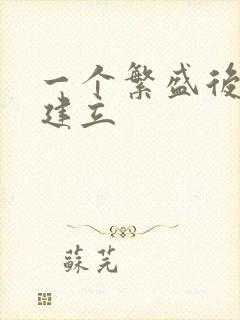 一个繁盛後
建立
蘇芫